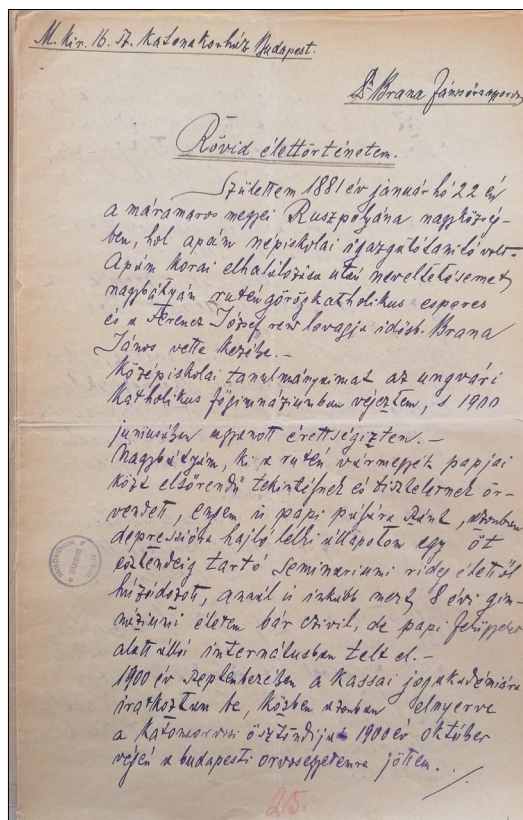 M. kir. 16. sz. katonakorház Budapest.
Dr Brana János
Rövid élettörténetem.
Születtem 1881 év január hó 22 én
a máramaros megyei Ruszpolyána nagyközség-
ben, hol apám népiskolai igazgatótanító volt.
Apám korai elhalálozása után neveltetésemet
nagybátyám rutén görögkatholikus esperes
és a Ferencz József rend lovagja idősb. Brana
János vette kezébe. -
Középiskolai tanulmányaimat az ungvári
katholikus főgimnáziumban végeztem, s 1900
juniusában ugyanott érettségiztem. -
Nagybátyám, ki a rutén vármegyék papjai
közt elsőrendű tekintélynek és tiszteletnek ör-
vendett, engem is papi pályára szánt, azonban
depresszióra hajló lelki állapotom egy öt
esztendeig tartó seminariumi rideg élettől
húzódozott, annál is inkább mert 8 évi gim-
náziumi életem bár czivil, de papi
alatt álló internátusban telt el. -
1900 év szeptemberében a kassai jogakadémiára
iratkoztam be, közben azonban elnyerve
a katonaorvosi ösztöndíjat 1900 év október
végén a budapesti orvosegyetemre jöttem.
25.